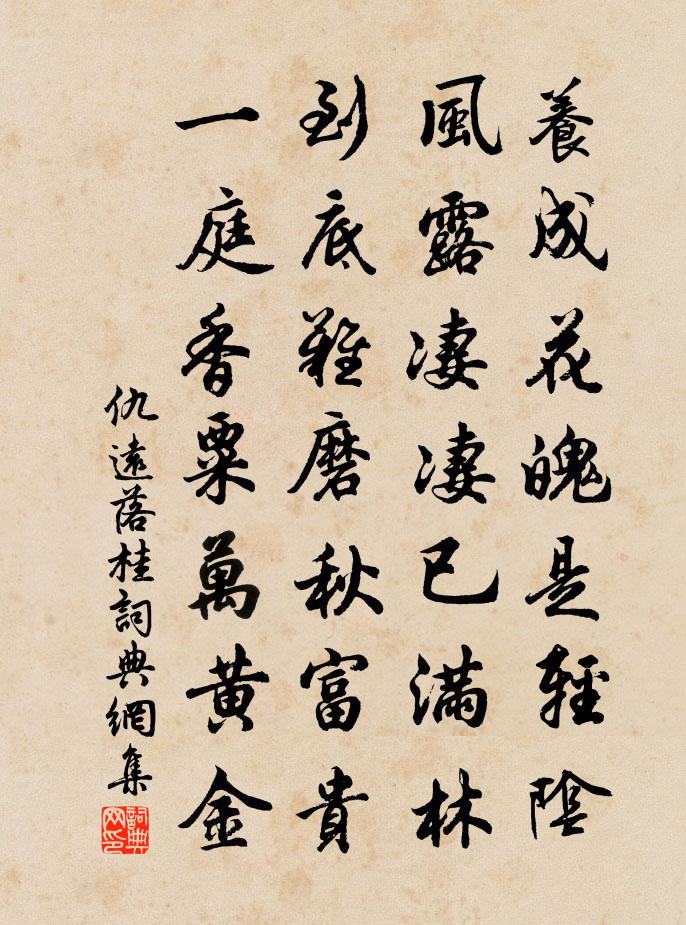 養成花魄是輕陰
風露凄凄已滿林
到底難磨秋富貴
一庭香粟萬黃金
仇遠落桂詞典網集
詞典網印